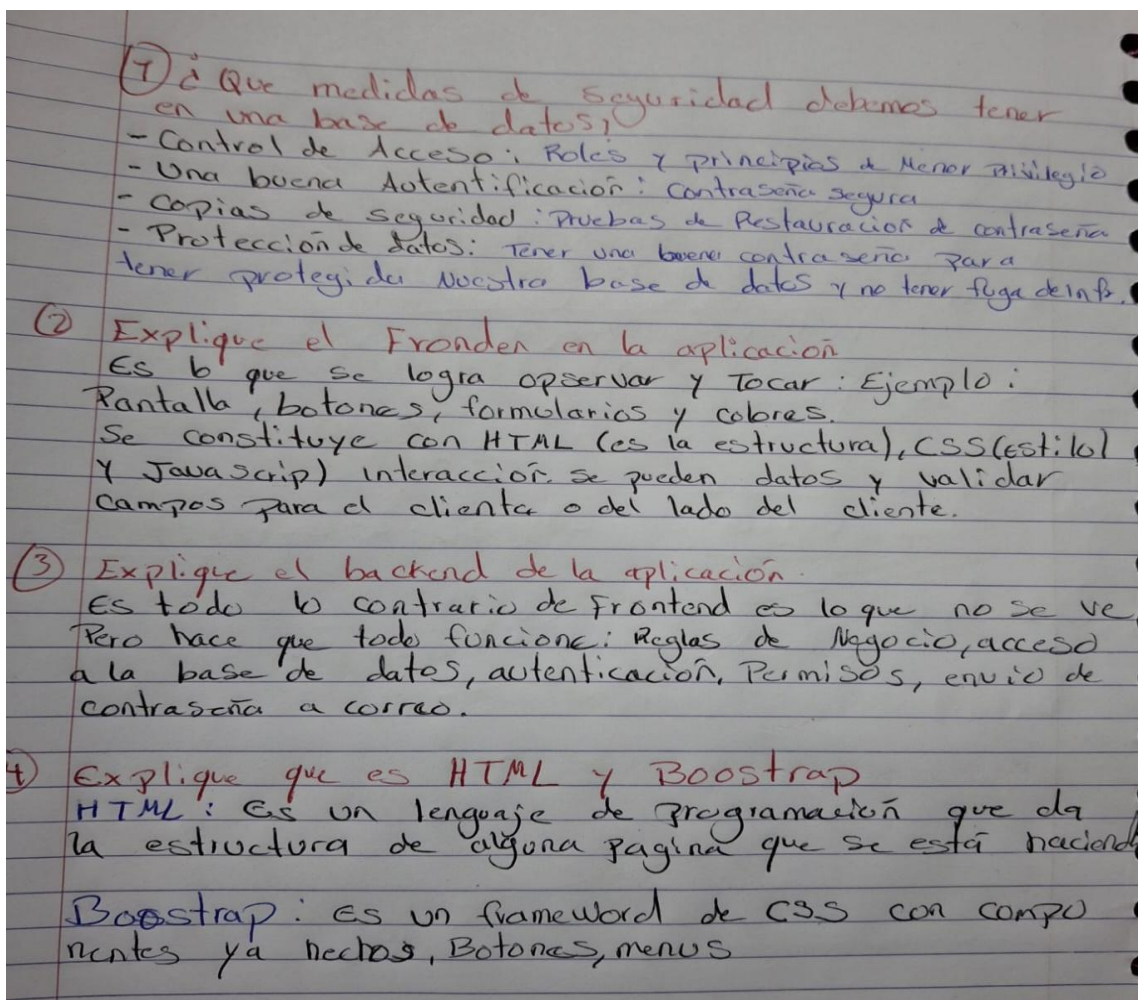 ① ¿Que medidas de seguridad debemos tener
en una base de datos?
- Control de Acceso: Roles y principios de Menor Privilegio
- Una buena Autentificación: contraseña segura
- Copias de seguridad: Pruebas de Restauración de contraseña
- Protección de datos: Tener una buena contraseña para
tener protegida Nuestra base de datos y no tener fuga de inf.
② Explique el Fronden en la aplicación
Es lo que se logra opservar y Tocar: Ejemplo:
Pantalla, botones, formularios y colores.
Se constituye con HTML (es la estructura), CSS (estilo)
Y Javascrip) interacción. se pueden datos y validar
campos para el cliente o del lado del cliente.
③ Explique el backend de la aplicación.
Es todo lo contrario de Frontend es lo que no se ve
Pero hace que todo funcione: Reglas de Negocio, acceso
a la base de datos, autenticación, Permisos, envio de
contraseña a correo.
4 Explique que es HTML y Boostrap
HTML: Es un lenguaje de programación que da
la estructura de alguna pagina que se está haciend
Boostrap: Es un frameword de CSS con compo
nentes ya hechos, Botones, menus